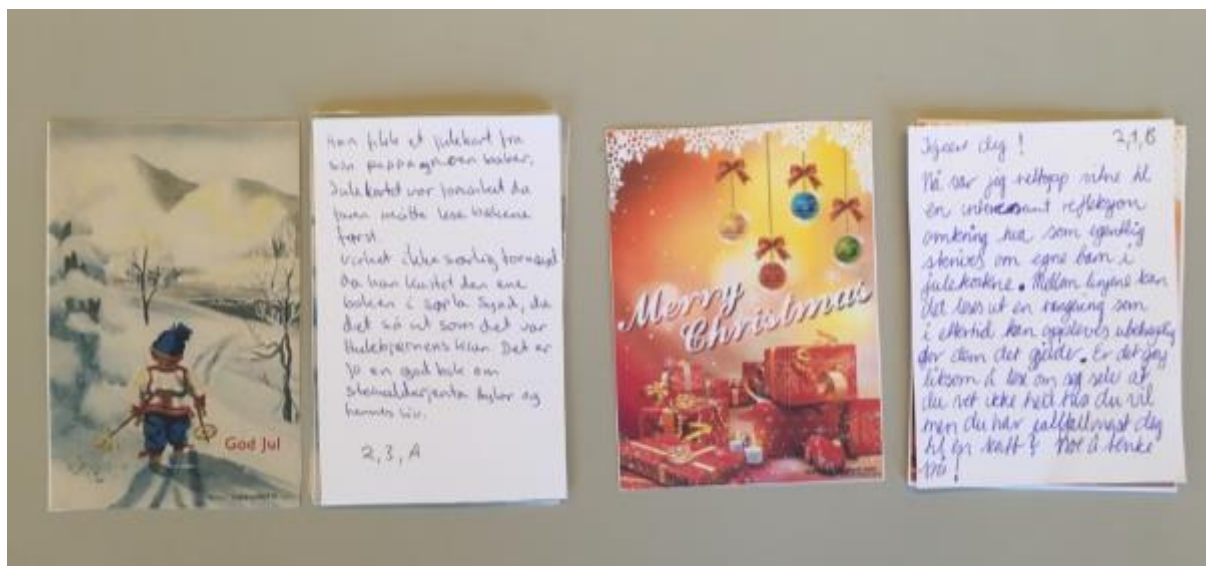 God Jul
Han fikk et julekart fra
sin pappa og noen bøker.
Julekortet var
faren måtte lese bøkene
først.
virket ikke særlig fornøyd
da han kastet den ene
boken i søpla. Synd, da
det så ut som det var
Hulebjørnens klan. Det er
jo en god bok om
steinalderjenta Ayla og
hennes liv.
2,3,A
Merry
Christmas
Kjære deg! 2,1,B
Nå var jeg nettopp vitne til
en interessant refleksjon
omkring hva som egentlig
skrives om egne barn i
julekortene. Mellom linjene kan
det leses ut en rangering som
i ettertid kan oppleves ubehagelig
for dem det gjelde. Er det gøy
liksom å lese om seg selv at
du vet ikke helt hva du vil
men du har iallfall deg
til en katt? Noe å tenke
på!